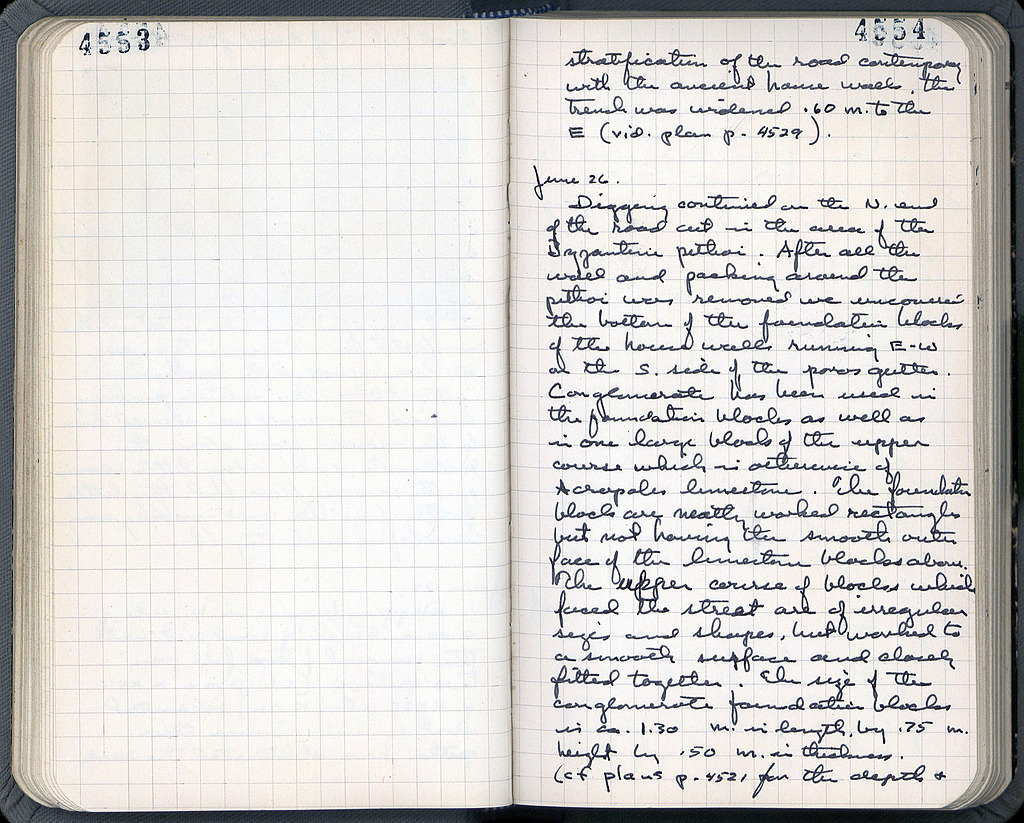 4553
4554
stratification of the road contemporary
with the ancient house walls, the
trench was widened .60 m. to the
E (vid. plan p. 4529).
June 26.
Digging continued on the N. end
of the road cut in the area of the
Byzantine pithoi. After all the
wall and packing around the
pithoi was removed we uncovered
the bottom of the foundation blocks
of the house walls running E-W
on the S. side of the poros gutter.
Conglomerate has been used in
the foundation blocks as well as
in one large block of the upper
course which is otherwise of
Acropolis limestone. The foundation
blocks are neatly worked rectangles
but not having the smooth outer
face of the limestone blocks above.
The upper course of blocks which
faced the street are of irregular
sizes and shapes, but worked to
a smooth surface and closely
fitted together. The size of the
conglomerate foundation blocks
is ca. 1.30 m. in length, by .75 m.
height by .50 m. in thickness.
(cf plans p. 4521 for the depth +